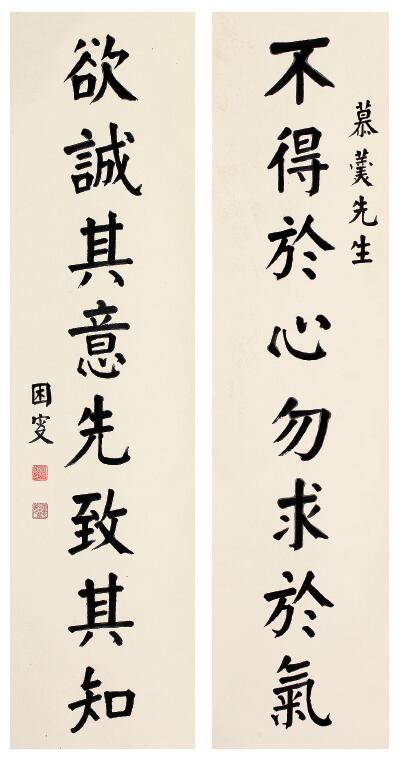 慕先生
不得於心勿求於氣
欲誠其意先致其知
困叜